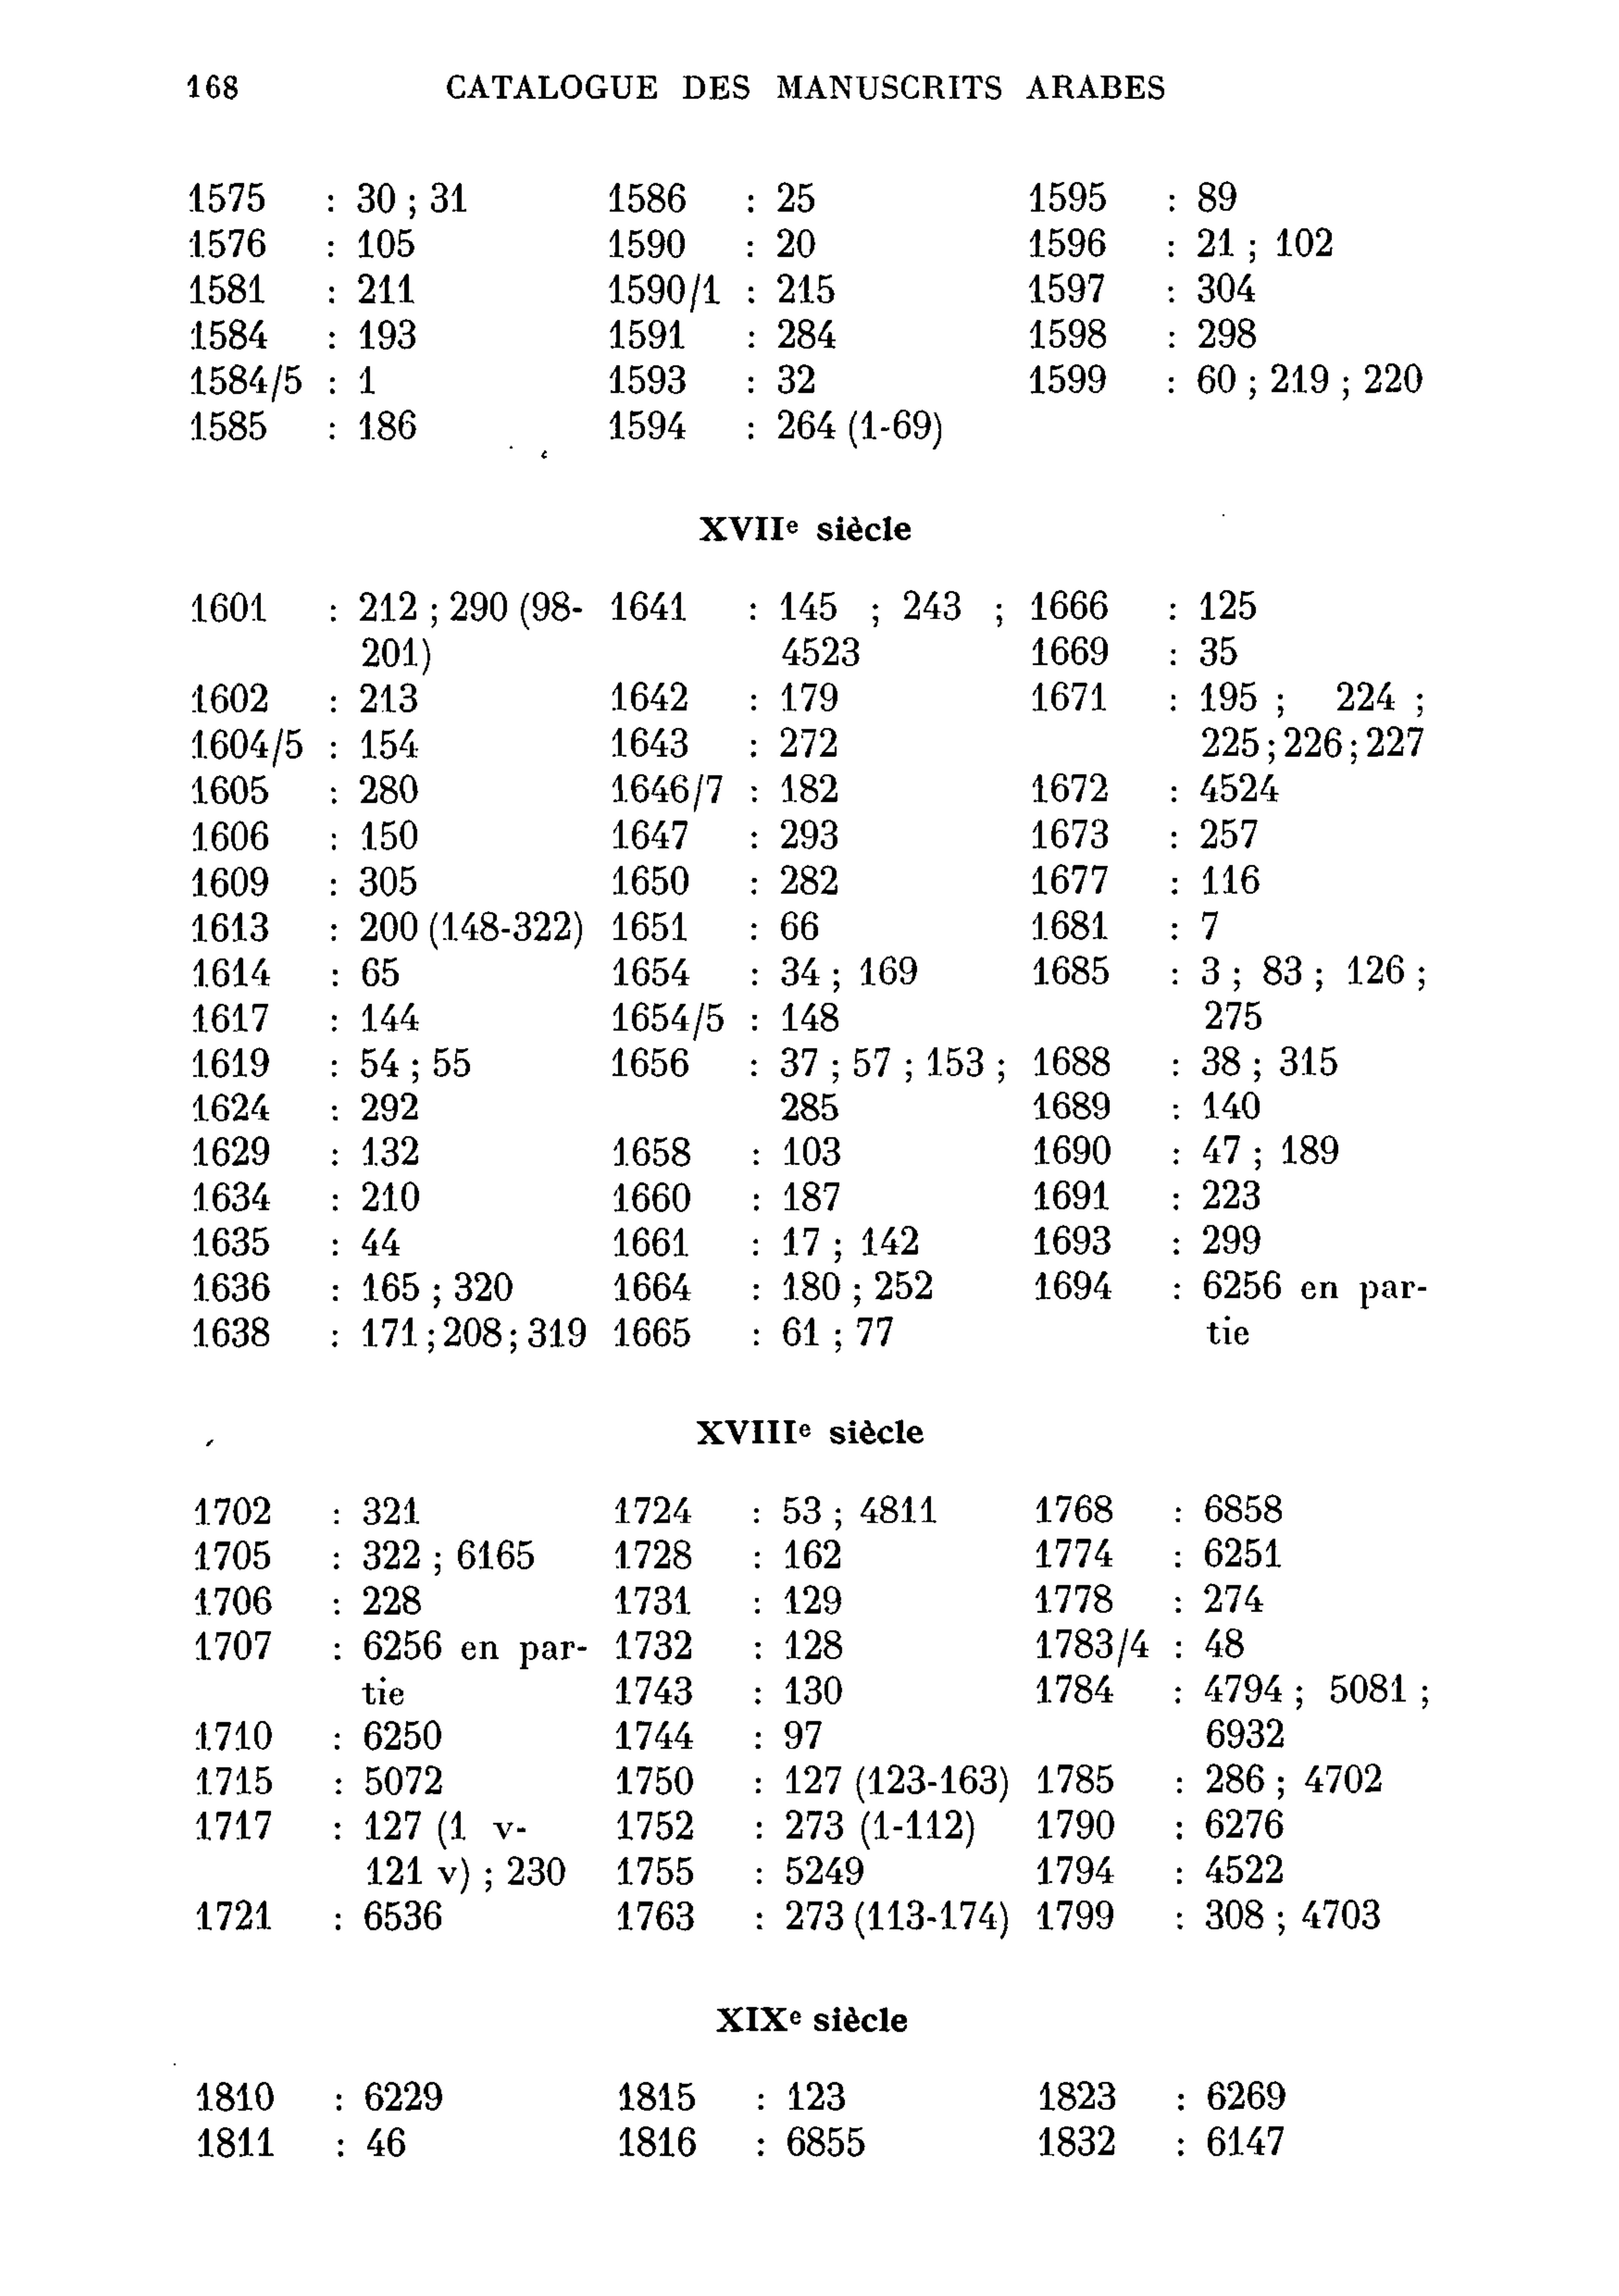 168 CATALOGUE DES MANUSCRITS ARABES
1575 : 30 ; 31
1576 : 105
1581 : 211
1584 : 193
1584/5 : 1
1585 : 186
1586 : 25
1590 : 20
1590/1 : 215
1591 : 284
1593 : 32
1594 : 264 (1-69)
1595 : 89
1596 : 21 ; 102
1597 : 304
1598 : 298
1599 : 60 ; 219 ; 220
XVIIe siècle
1601 : 212 ; 290 (98-
201)
1602 : 213
1604/5 : 154
1605 : 280
1606 : 150
1609 : 305
1613 : 200 (148-322)
1614 : 65
1617 : 144
1619 : 54 ; 55
1624 : 292
1629 : 132
1634 : 210
1635 : 44
1636 : 165 ; 320
1638 : 171 ; 208 ; 319
1641 : 145 ; 243 ;
4523
1642 : 179
1643 : 272
1646/7 : 182
1647 : 293
1650 : 282
1651 : 66
1654 : 34 ; 169
1654/5 : 148
1656 : 37 ; 57 ; 153 ;
285
1658 : 103
1660 : 187
1661 : 17 ; 142
1664 : 180 ; 252
1665 : 61 ; 77
1666 : 125
1669 : 35
1671 : 195 ; 224 ;
225 ; 226 ; 227
1672 : 4524
1673 : 257
1677 : 116
1681 : 7
1685 : 3 ; 83 ; 126 ;
275
1688 : 38 ; 315
1689 : 140
1690 : 47 ; 189
1691 : 223
1693 : 299
1694 : 6256 en par-
tie
XVIIIe siècle
1702 : 321
1705 : 322 ; 6165
1706 : 228
1707 : 6256 en par-
tie
1710 : 6250
1715 : 5072
1717 : 127 (1 v-
121 v) ; 230
1721 : 6536
1724 : 53 ; 4811
1728 : 162
1731 : 129
1732 : 128
1743 : 130
1744 : 97
1750 : 127 (123-163)
1752 : 273 (1-112)
1755 : 5249
1763 : 273 (113-174)
1768 : 6858
1774 : 6251
1778 : 274
1783/4 : 48
1784 : 4794 ; 5081 ;
6932
1785 : 286 ; 4702
1790 : 6276
1794 : 4522
1799 : 308 ; 4703
XIXe siècle
1810 : 6229
1811 : 46
1815 : 123
1816 : 6855
1823 : 6269
1832 : 6147